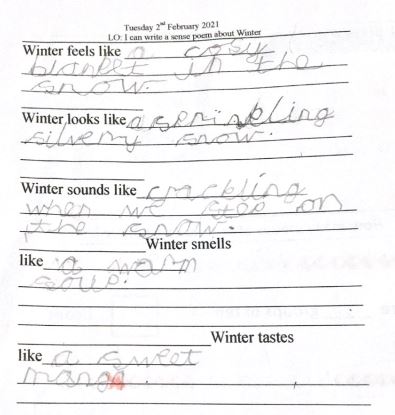 Tuesday 2nd February 2021
LO: I can write a sense poem about Winter
Winter feels like a cosy
blanket in the
snow.
Winter looks like a sprinkling
silvery snow.
Winter sounds like crackling
when we step on
the snow.
Winter smells
like a warm
soup.
Winter tastes
like a sweet
mango.